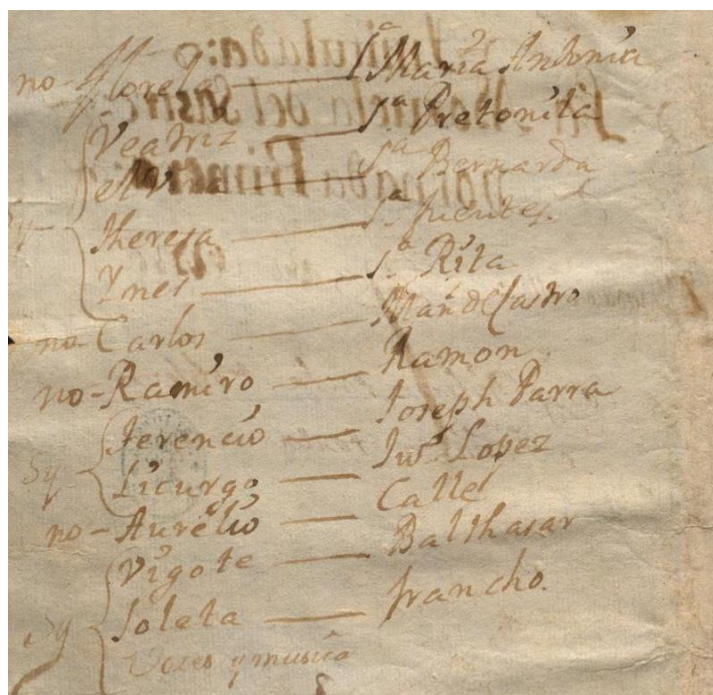 no- Florela — Sª Maria Antonia
Veatriz — Sª Pretonila
elvira — Sª Bernarda
Sy Theresa — Sª fuentes.
Ynes — Sª Rita
no- Carlos — Man.l de Castro
no- Ramiro — Ramon
Terencio — Joseph Parra
Sy Licurgo — Ju.º Lopez
no- Aurelio — Calle
Vigote — Balthasar
Sy Soleta — francho.
Vozes y musica